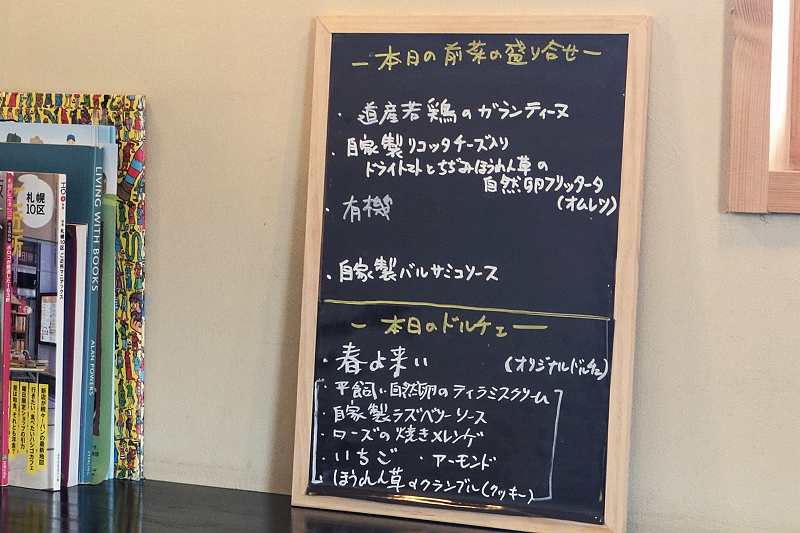 ー本日の前菜の盛り合せー
・道産若鶏のガランティーヌ
・自家製リコッタチーズ入り
ドライトマトとちぢみほうれん草の
自然卵フリッタータ
(オムレツ)
・有機
・自家製バルサミコソース
ー本日のドルチェー
・春よ来い (オリジナルドルチェ)
・平飼い自然卵のティラミスクリーム
・自家製ラズベリーソース
・ローズの焼きメレンゲ
・いちご ・アーモンド
・ほうれん草のクランブル(クッキー)
LIVING WITH BOOKS
ALAN POWERS
札幌
10区